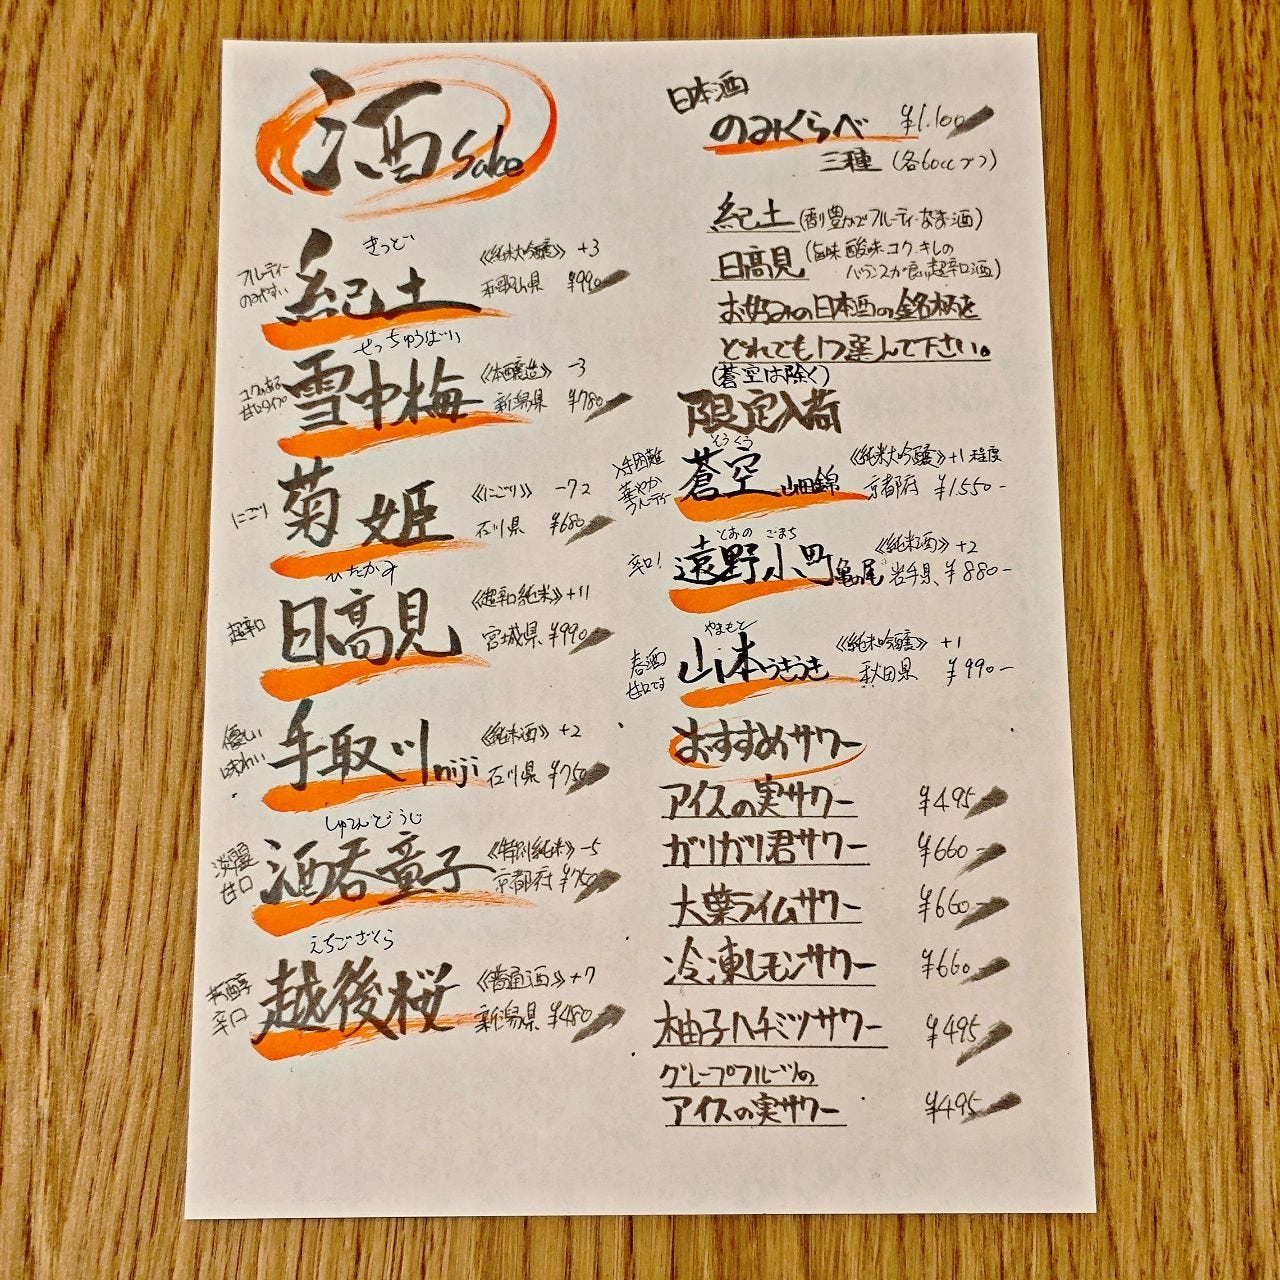 酒 Sake
きっど
フルーティー
のみやすい
紀土
《純米大吟醸》 +3
和歌山県 ¥990-
せっちゅうばい
コクのある
甘口タイプ
雪中梅
《本醸造》 -3
新潟県 ¥780-
にごり
菊姫
《にごり》 -72
石川県 ¥680-
ひたかみ
超辛口
日高見
《超辛口純米》 +11
宮城県 ¥990-
優しい
味わい
手取川 niji
《純米酒》 +2
石川県 ¥750-
しゅてんどうじ
淡麗
甘口
酒呑童子
《特別純米》 -5
京都府 ¥750-
えちござくら
芳醇
辛口
越後桜
《普通酒》 +7
新潟県 ¥480-
日本酒
のみくらべ ¥1.100-
三種 (各60ccずつ)
紀土 (香り豊かでフルーティーなお酒)
日高見 (旨味 酸味 コク、キレの
バランスが良い超辛口酒)
お好みの日本酒の銘柄を
どれでも1つ選んで下さい。
(蒼空は除く)
限定入荷
そうくう
入手困難
華やか
フルーティー
蒼空 山田錦
《純米大吟醸》 +1程度
京都府 ¥1.550-
とおの こまち
辛口!
遠野小町 亀の尾
《純米酒》 +2
岩手県 ¥880-
やまもと
春酒
甘口です
山本うきうき
《純米吟醸》 +1
秋田県 ¥990-
おすすめサワー
アイスの実サワー ¥495-
ガリガリ君サワー ¥660-
大葉ライムサワー ¥660-
冷凍レモンサワー ¥660-
柚子ハチミツサワー ¥495-
グレープフルーツの
アイスの実サワー ¥495-